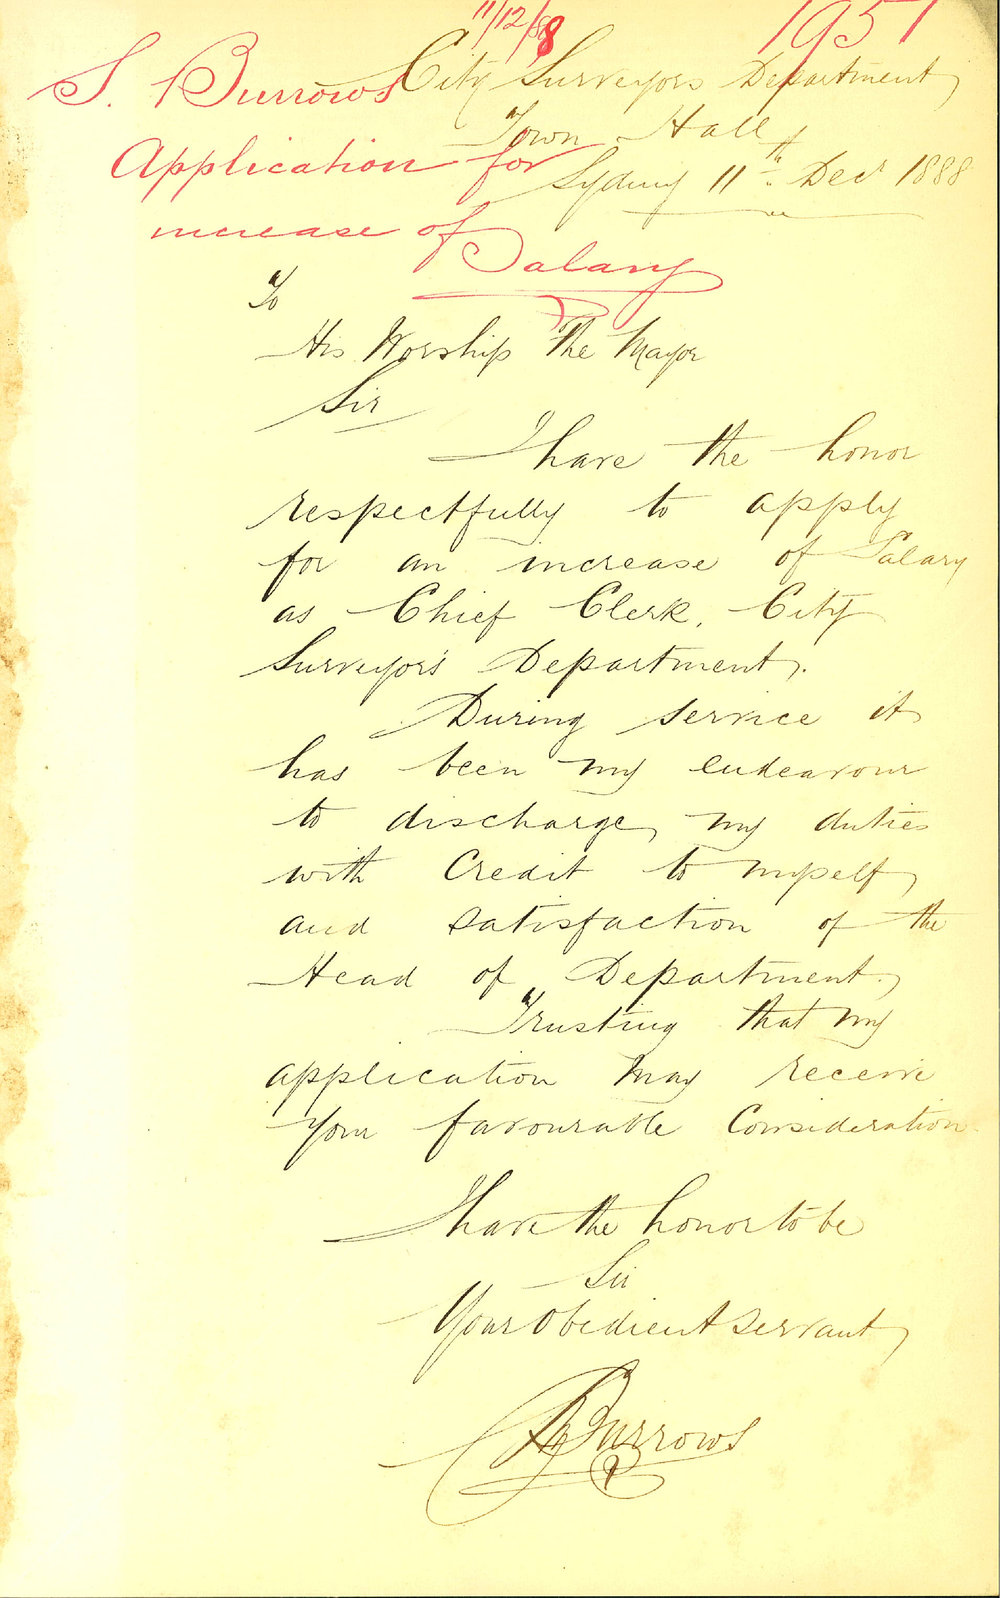 11/12/88
1957
S. Burrows
Application for
increase of
Salary
City Surveyors Department
Town Hall
Sydney 11th Decr 1888
To
His Worship The Mayor
Sir
I have the honor
respectfully to apply
for an increase of Salary
as Chief Clerk, City
Surveyor's Department.
During service it
has been my endeavour
to discharge my duties
with Credit to myself
and satisfaction of the
Head of Department.
Trusting that my
application may receive
your favourable Consideration
I have the honor to be
Sir
Your Obedient Servant
Burrows